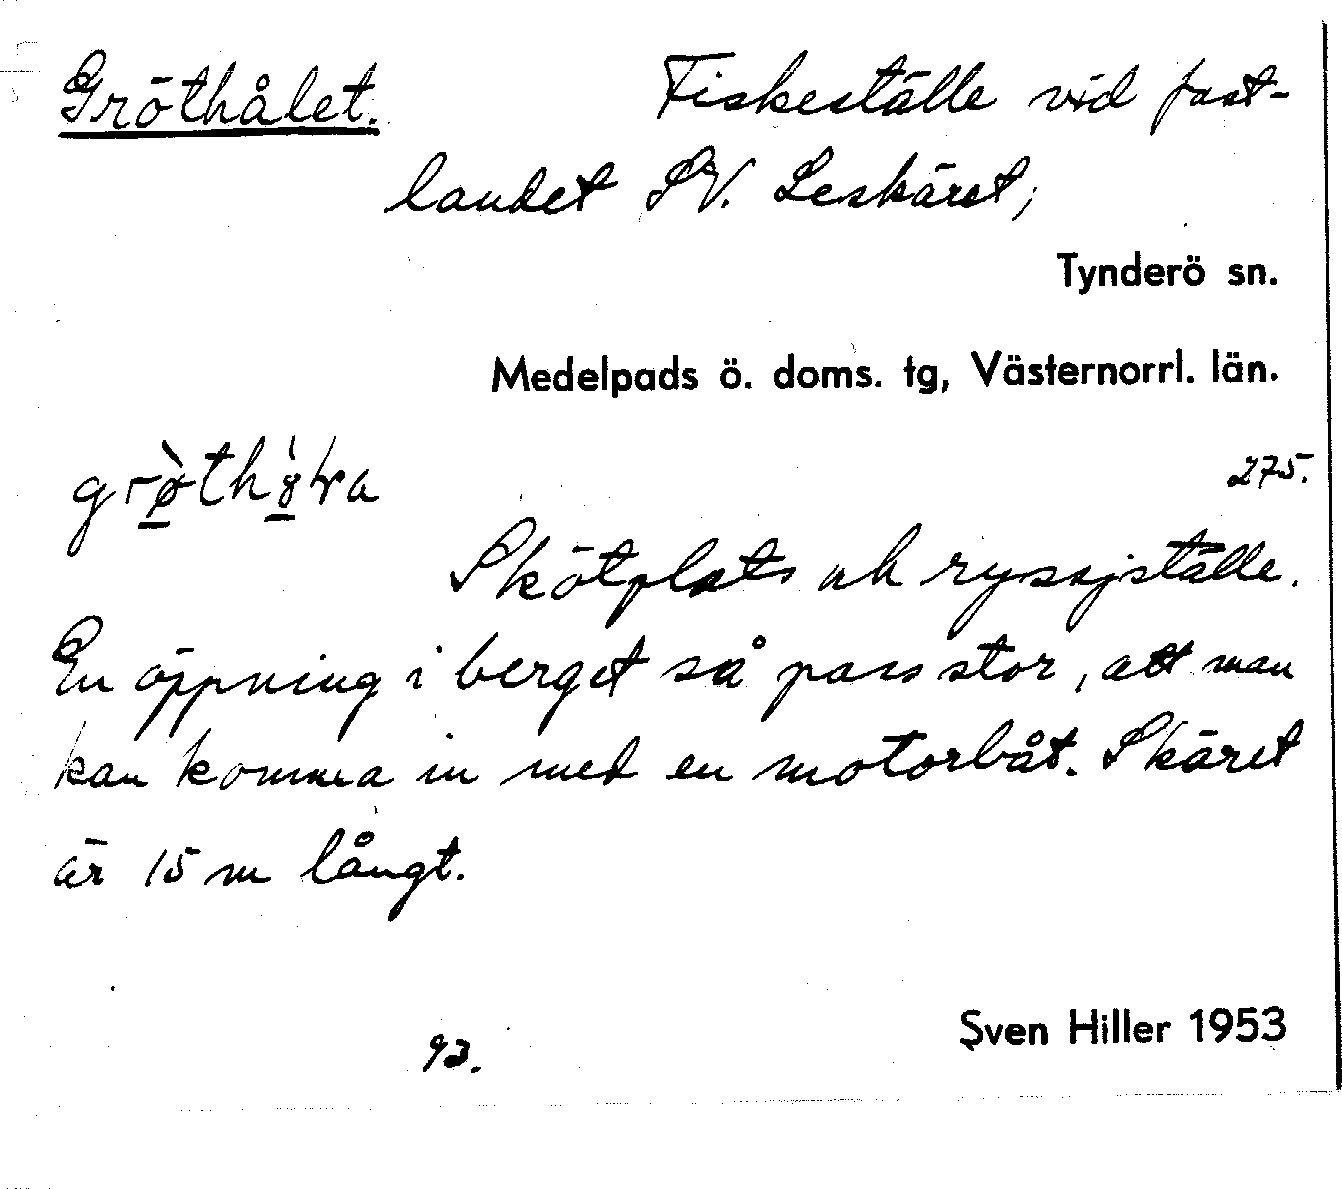 Gröthålet. Fiskeställe vid fast-
landet SV. Leskäret;
Tynderö sn.
Medelpads ö. doms. tg, Västernorrl. län.
275.
Skötplats och ryssjställe.
En öppning i berget så pass stor, att man
kan komma in med en motorbåt. Skäret
är 15 m långt.
93.
Sven Hiller 1953